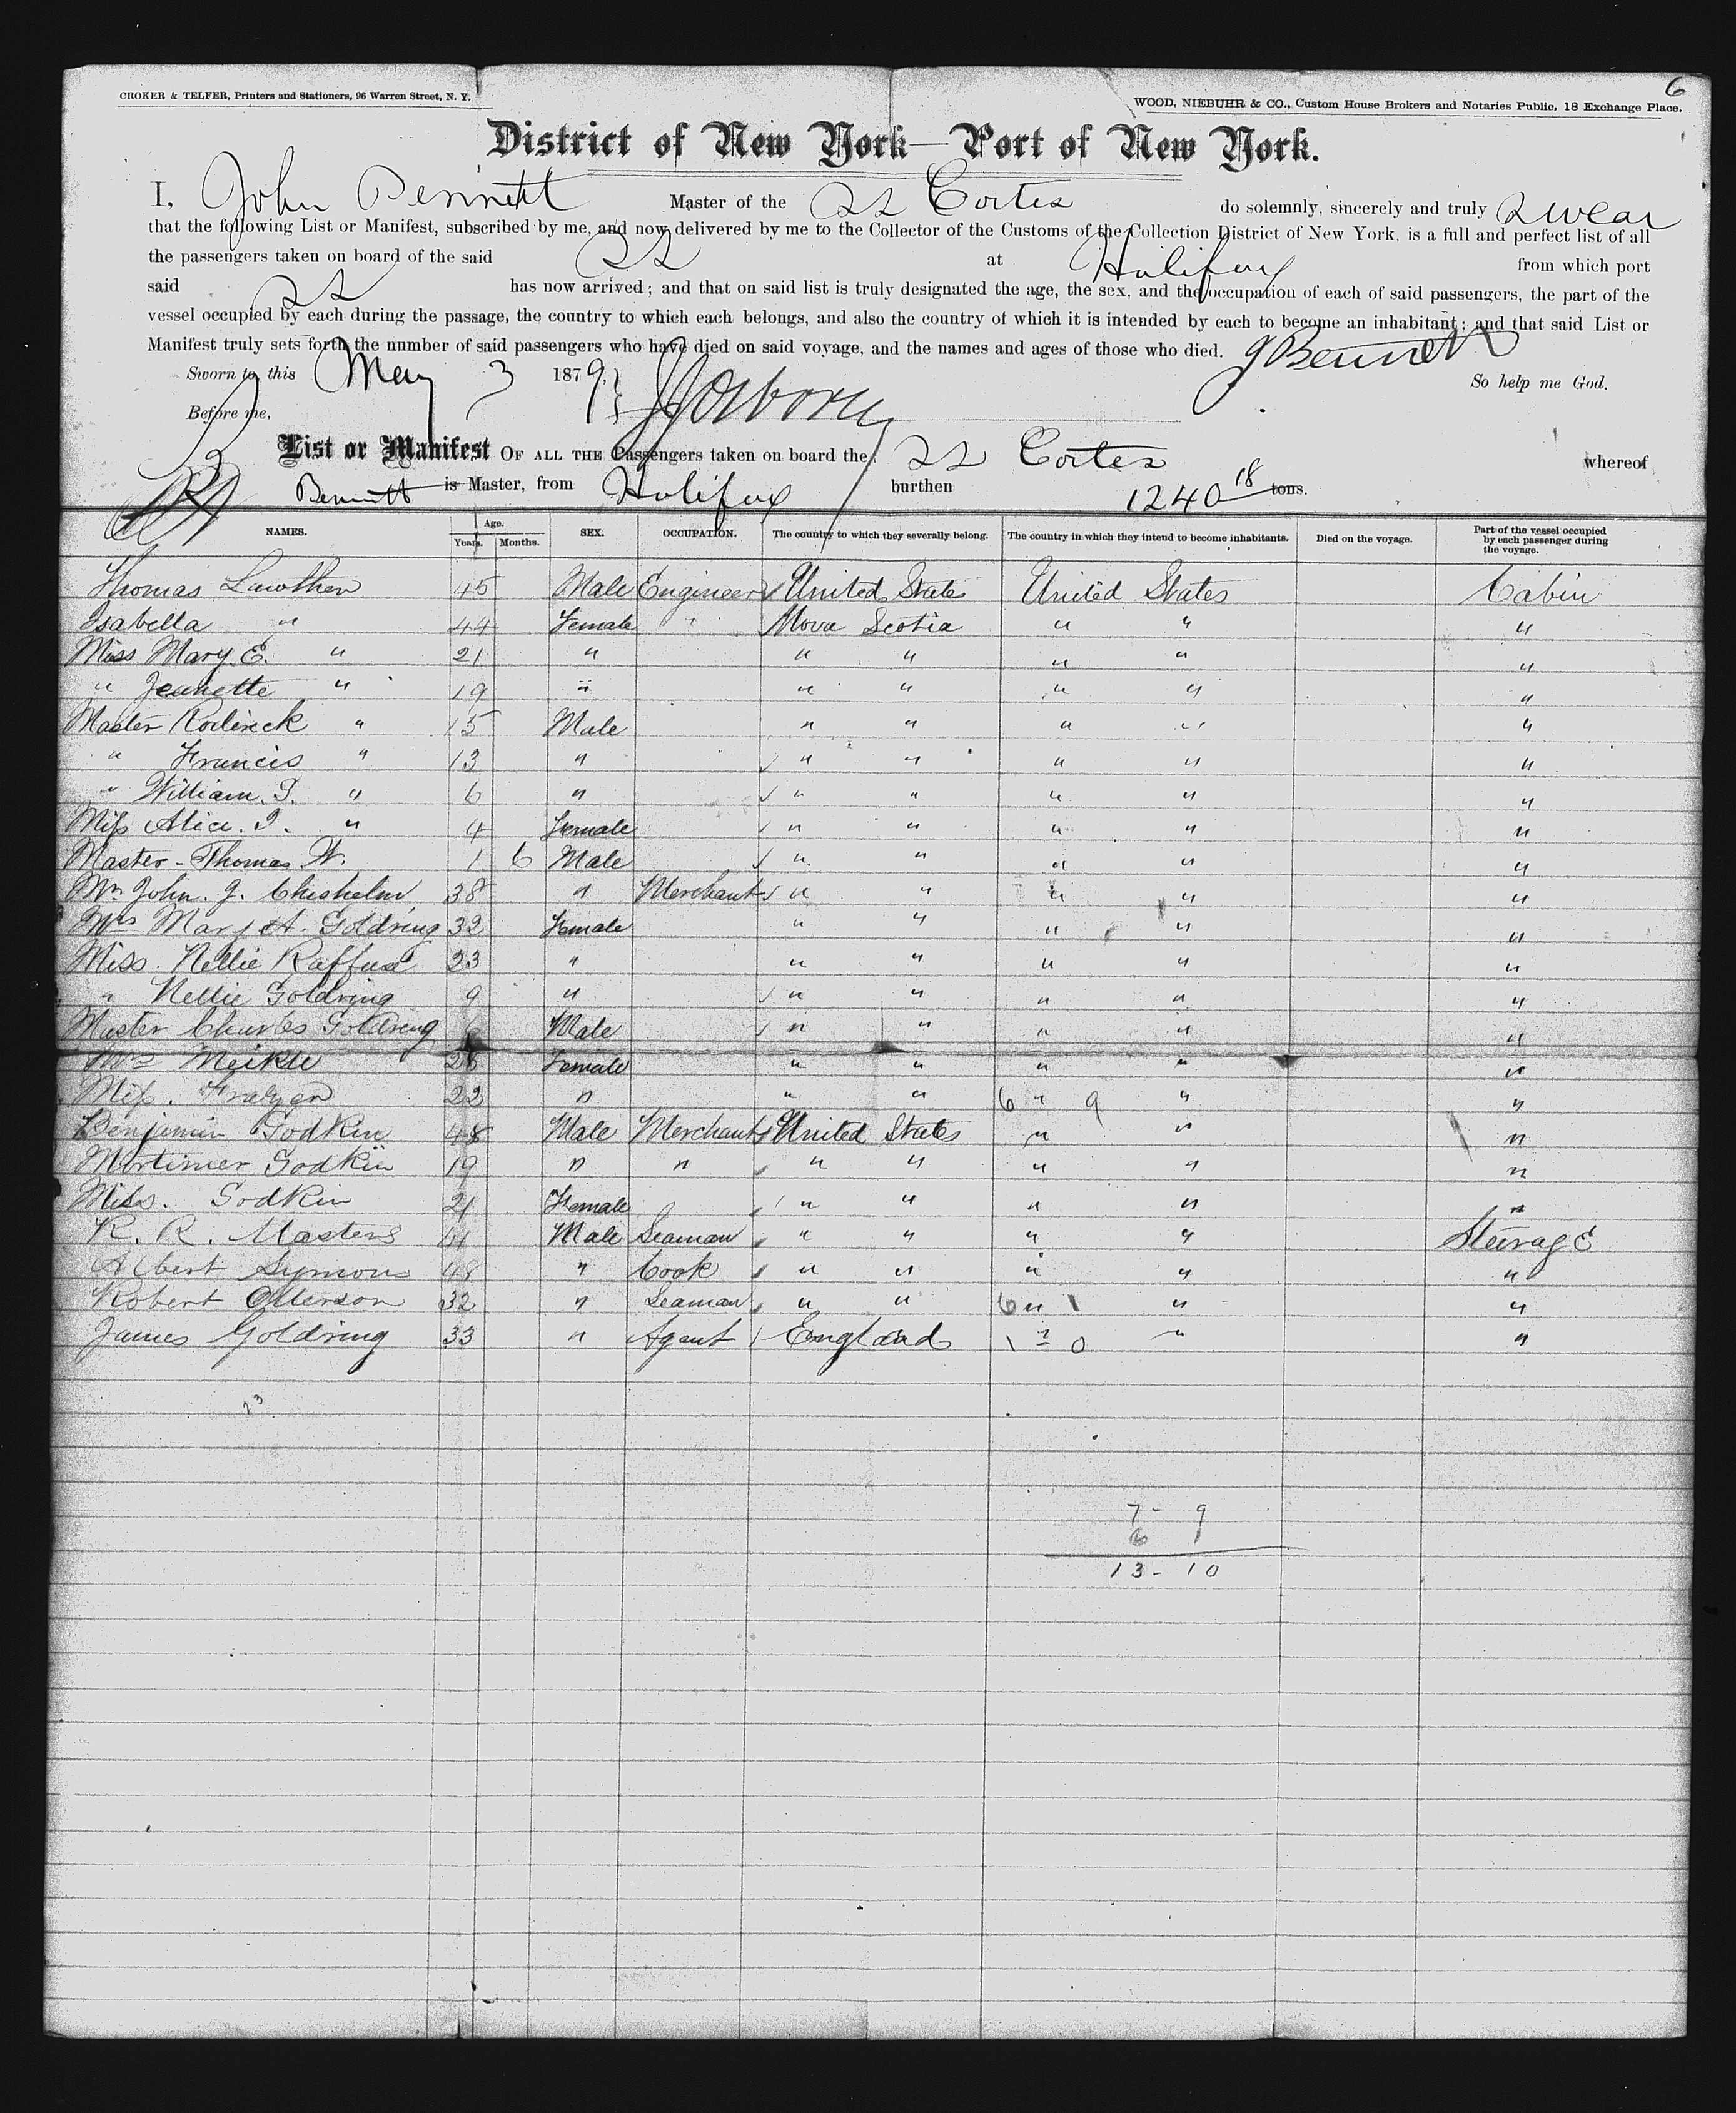 6
CROKER & TELFER, Printers and Stationers, 96 Warren Street, N. Y.
WOOD, NIEBUHR & CO., Custom House Brokers and Notaries Public, 18 Exchange Place.
District of New York—Port of New York.
I, John Bennett Master of the SS Cortes do solemnly, sincerely and truly swear
that the following List or Manifest, subscribed by me, and now delivered by me to the Collector of the Customs of the Collection District of New York, is a full and perfect list of all
the passengers taken on board of the said SS at Halifax from which port
said SS has now arrived; and that on said list is truly designated the age, the sex, and the occupation of each of said passengers, the part of the
vessel occupied by each during the passage, the country to which each belongs, and also the country of which it is intended by each to become an inhabitant; and that said List or
Manifest truly sets forth the number of said passengers who have died on said voyage, and the names and ages of those who died. J Bennett
Sworn to this May 3 1879, So help me God.
Before me,
List or Manifest OF ALL THE Passengers taken on board the SS Cortes whereof
Bennett is Master, from Halifax burthen 1240 18 tons.
NAMES. Age. Years. Months. SEX. OCCUPATION. The country to which they severally belong. The country in which they intend to become inhabitants. Died on the voyage. Part of the vessel occupied by each passenger during the voyage.
Thomas Lawther 45 Male Engineer United States United States Cabin
Isabella " 44 Female " Nova Scotia " " "
Miss Mary E. " 21 " " " " " "
" Jeanette " 19 " " " " " "
Master Roderick " 15 Male " " " " "
" Francis " 13 " " " " " "
" William. " 6 " " " " " "
Miss Alice. " 4 Female " " " " "
Master - Thomas W. 1 6 Male " " " " "
Mr John. J. Chisholm 38 " Merchant " " " " "
Mrs Mary A. Goldring 32 Female " " " " "
Miss. Nellie 23 " " " " " "
" Nellie Goldring 9 " " " " " "
Master Charles Goldring 6 Male " " " " "
Mrs Meikle 28 Female " " " " "
Miss. 22 " " " 6 " 9 " "
Benjimin Godkin 48 Male Merchant United States " " "
Mortimer Godkin 19 " " " " " " "
Miss. Godkin 21 Female " " " " "
R. R. Masters 41 Male Seaman " " " " Steerage
Albert Symons 48 " Cook " " " " "
Robert Otterson 32 " Seaman " " 6 " 1 " "
James Goldring 33 " Agent England 1 " 0 " "
23
7 - 9
6 1
13 - 10